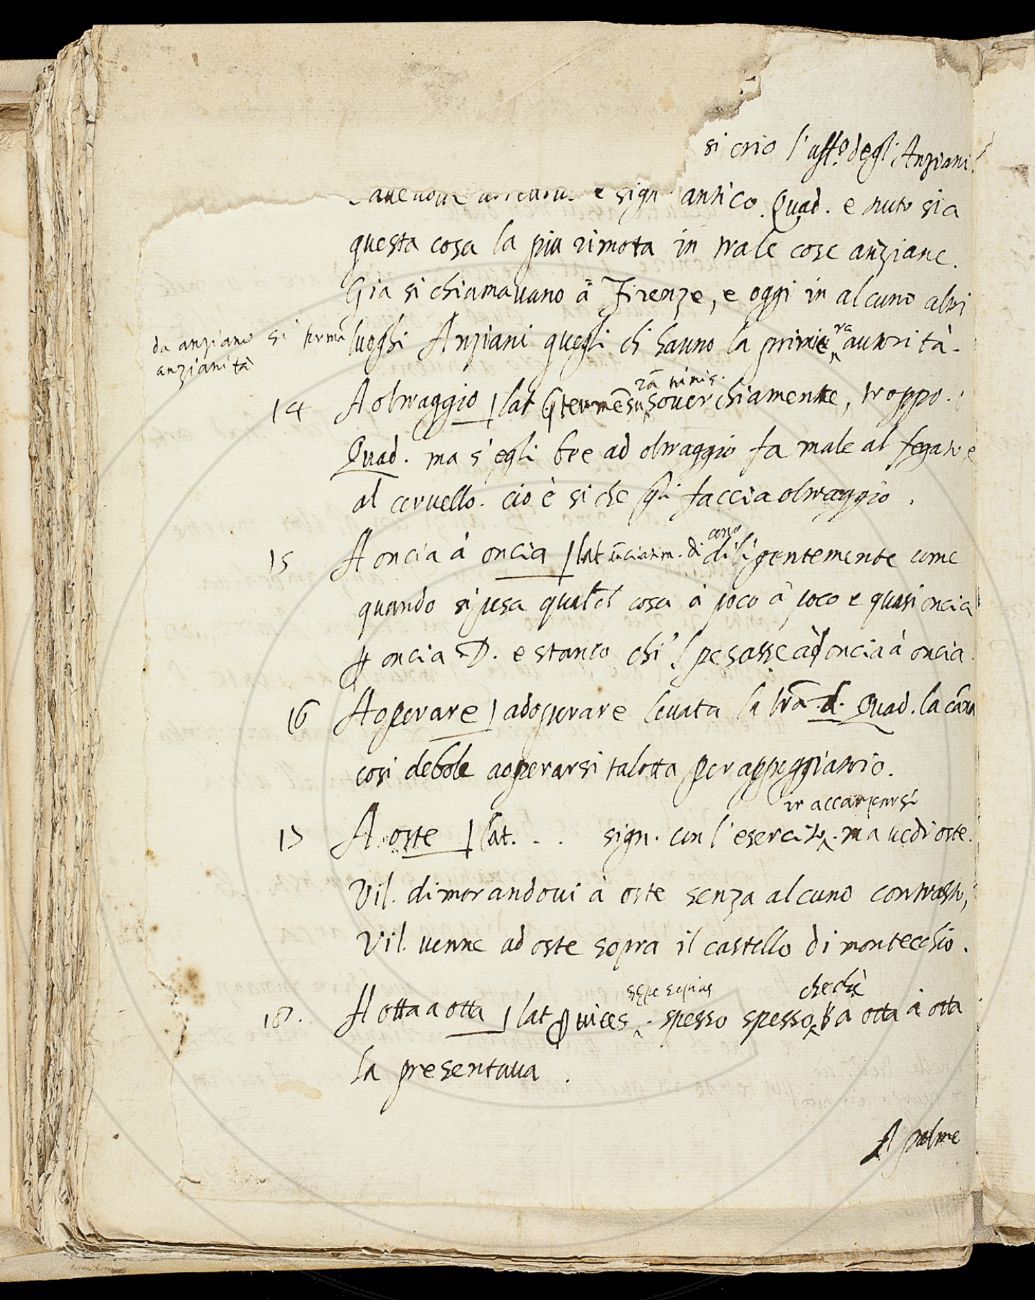 si crio l'uff.o degli Anziani.
e sign. antico. Quad. e tuto sia
questa cosa la piu rimota in tra le cose anziane.
Gia si chiamavano à Firenze, e oggi in alcuno altri
luoghi Anziani quegli ch hanno la primiera autorità.
da anziano si forma
anzianità
14 A oltraggio | lat souerchiamente, troppo.
Quad. ma s'egli bee ad oltraggio fa male al fegato e
al ceruello. cio è si che gli faccia oltraggio.
15 A oncia à oncia | lat unciatim. di diligentemente come
quando si pesa qualch cosa à poco à poco e quasi oncia
ꝑ oncia D. e stanco chi 'l pesasse ad oncia à oncia
16 Aoperare | adoperare leuata la lrã d. Quad. la carn
cosi debole aoperarsi talotta per appoggiatoio.
ir accamparsi
17 A oste | lat. . . sign. con l'esercito. ma uedi oste.
Vil. dimorandoui à oste senza alcuno contrasto,
Vil. uenne ad oste sopra il castello di montecchio.
sepe sepius
18. A otta a otta | lat ꝑ uices. spesso spesso, à otta à otta
la presentaua.
A palme